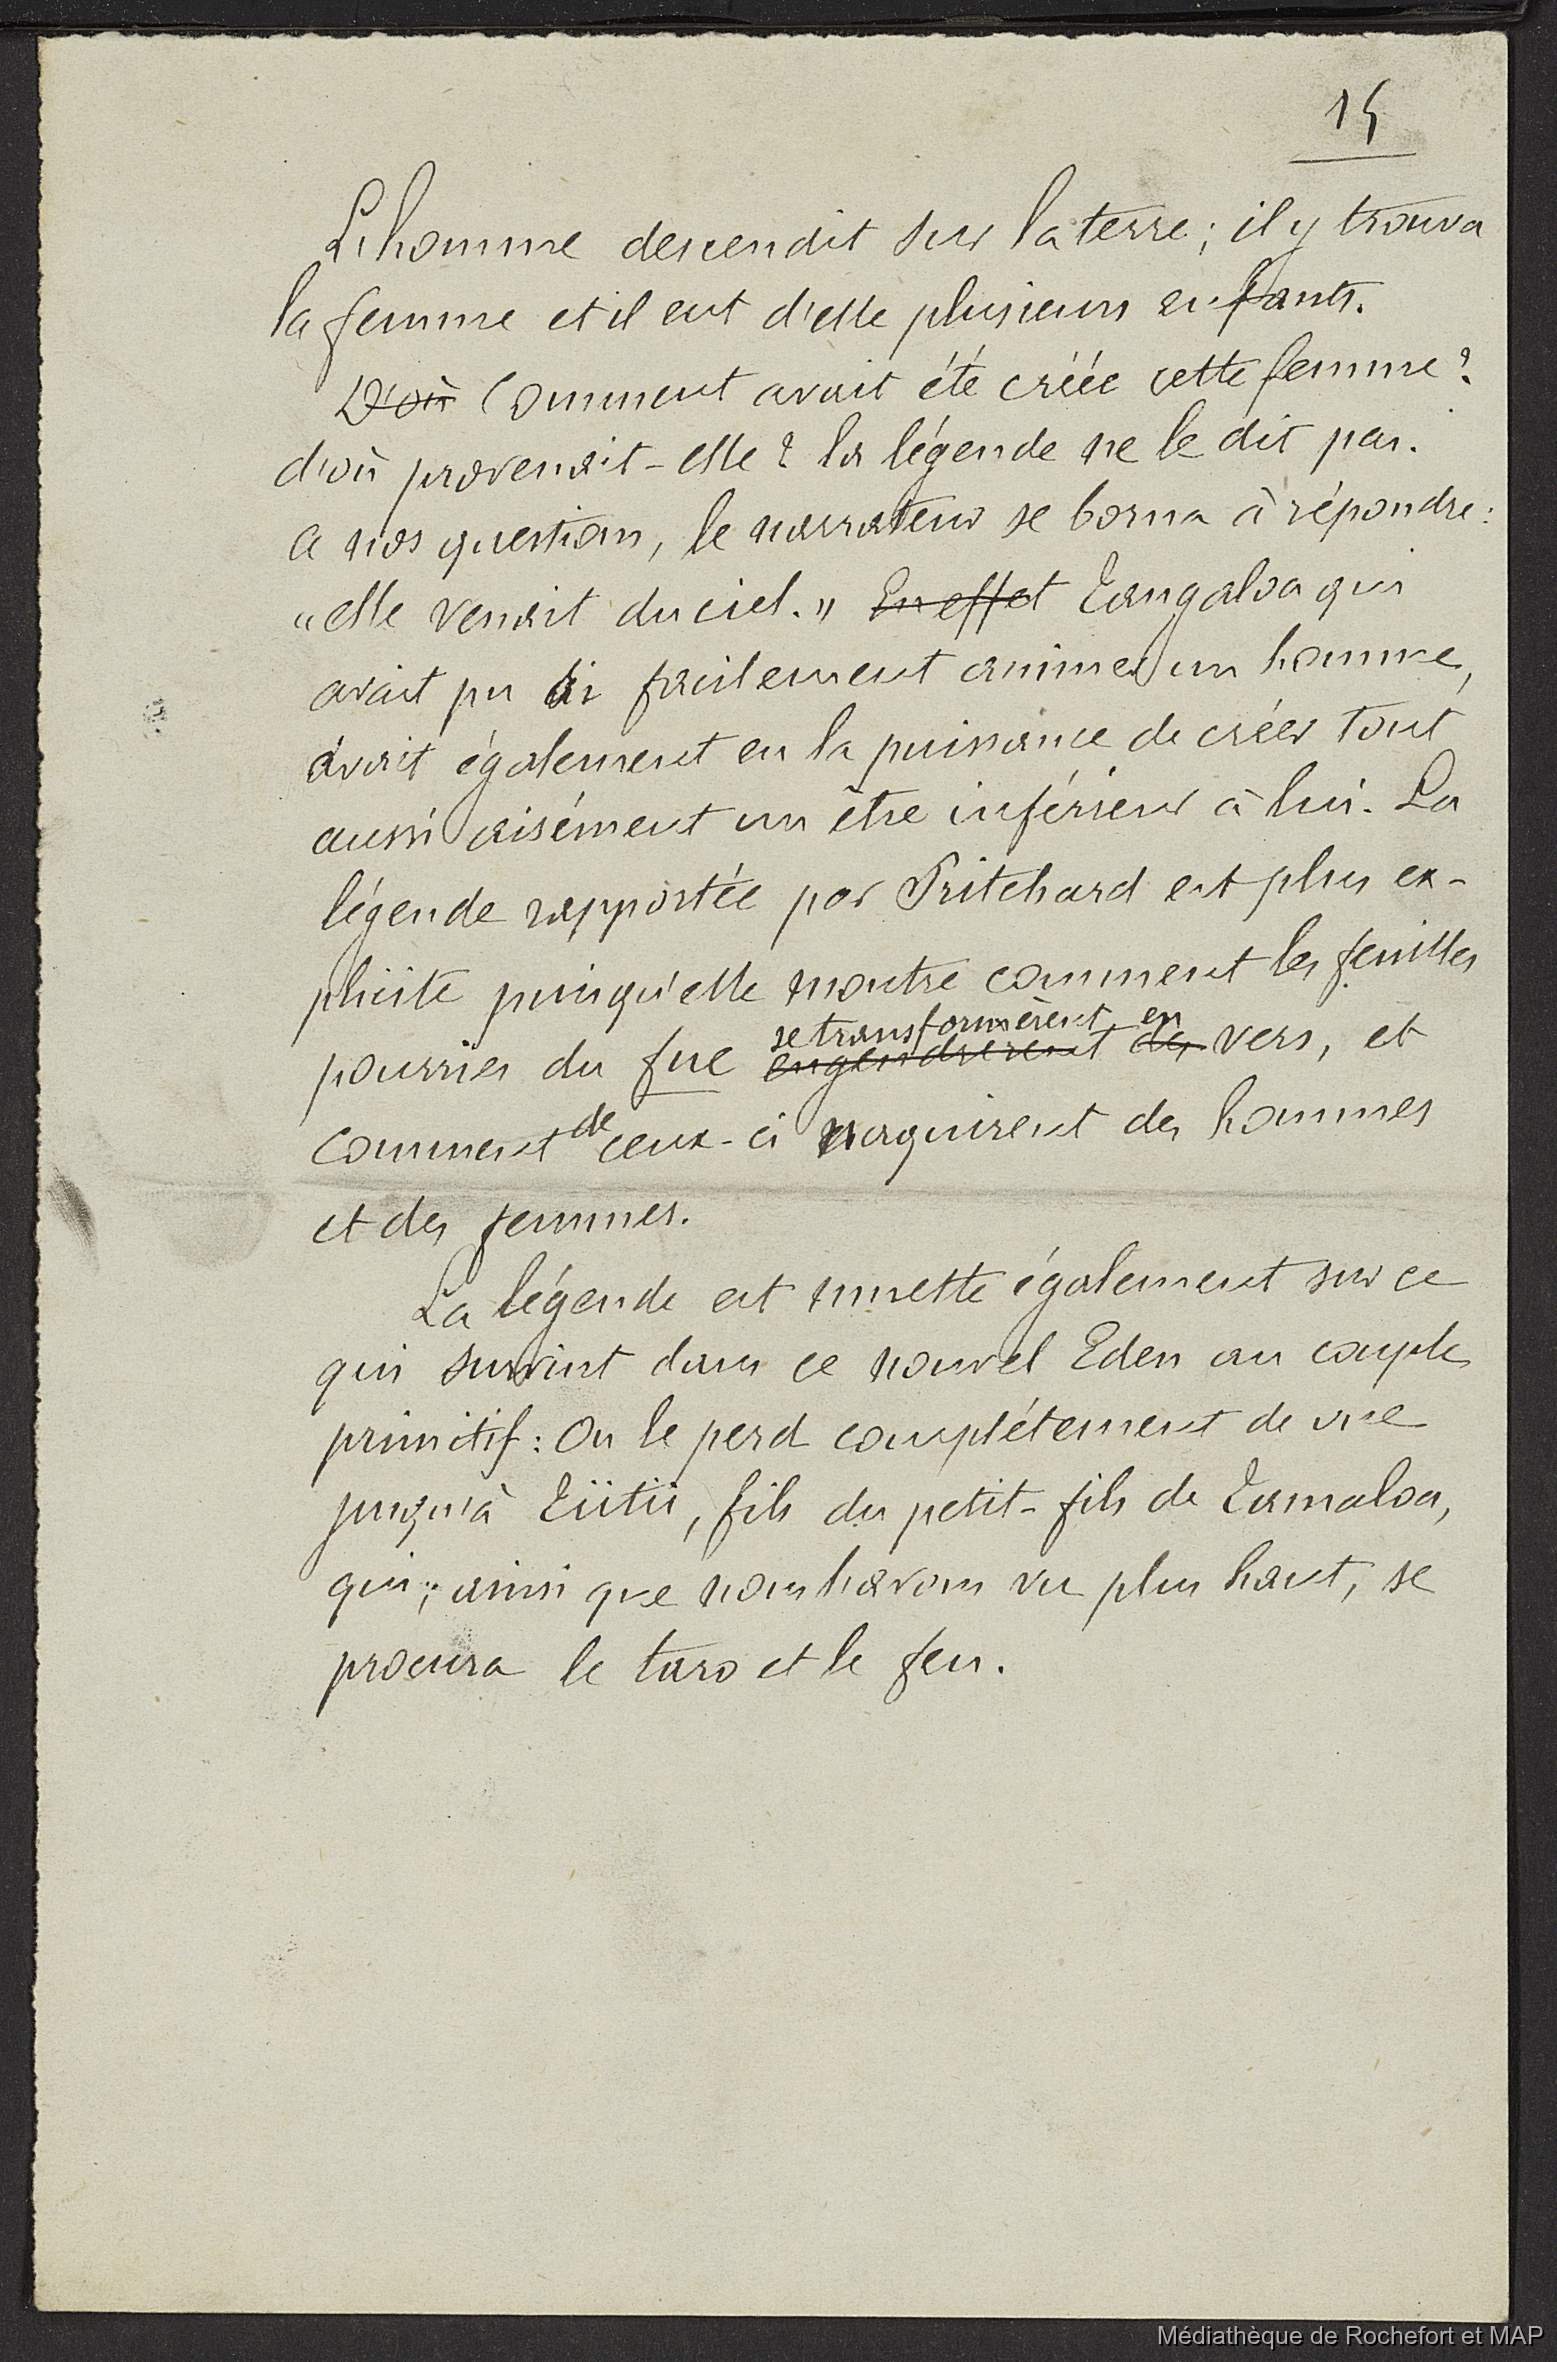 15
L'homme descendit sur la terre ; il y trouva
la femme et il eut d'elle plusieurs enfants.
D'où Comment avait été créée cette femme ?
d'où provenait-elle ? la légende ne le dit pas.
A nos questions, le narrateur se borna à répondre :
"elle venait du ciel." En effet Tangaloa qui
avait pu si facilement animer un homme,
avait également eu la puissance de créer tout
aussi aisément un être inférieur à lui. La
légende rapportée par Pritchard est plus ex-
plicite puisqu'elle montre comment les feuilles
se transformèrent en
pourries du fue engendrèrent des vers, et
comment de ceux-ci naquirent des hommes
et des femmes.
La légende est muette également sur ce
qui survint dans ce nouvel Eden au couple
primitif : On le perd complétement de vue
jusqu'à Tiitii, fils du petit-fils de Tamaloa,
qui, ainsi que nous l'avons vu plus haut, se
procura le taro et le feu.
Médiathèque de Rochefort et MAP